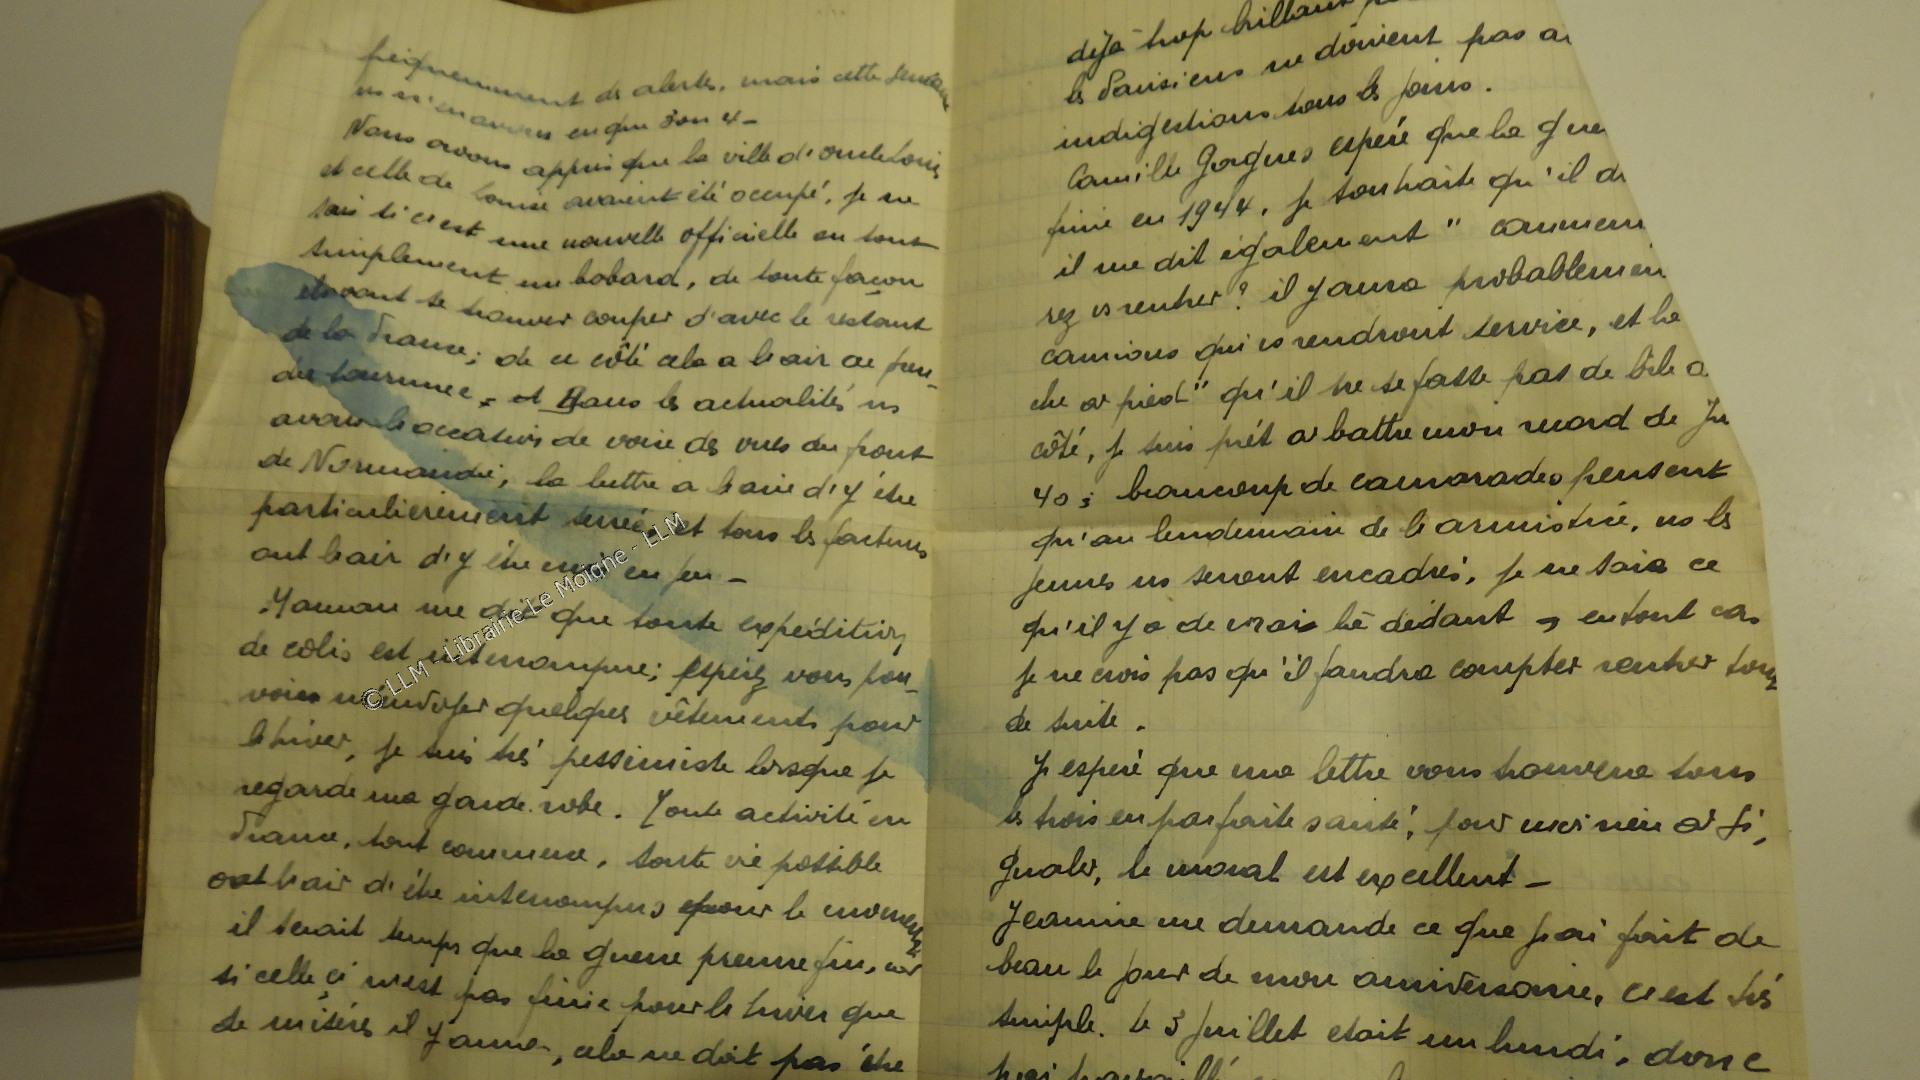 fréquemment des alertes, mais cette semaine
ns n'en avons eu que 3 ou 4 -
Nous avons appris que la ville d'oncle Louis
et celle de Louise avaient été occupé, je ne
sais si c'est une nouvelle officielle ou tout
simplement un bobard, de toute façon
étavant se trouver couper d'avec le restant
de la France; de ce côté cela a l'air de pren-
dre tournure, et Dans les actualités ns
avons l'occasion de voire des vues du front
de Normandie, la luttre a l'aire d'y être
particulièrement serrée, et tous les facteurs
ont l'air d'y être mis en jeu -
Maman me dit que toute expédition
de colis est interrompue; espérez vous pou-
voir m'envoyer quelques vêtements pour
l'hiver, je suis très pessimiste lorsque je
regarde ma garde-robe. Toute activité en
France, tout commerce, toute vie possible
ont l'air d'être interrompus pour le moment
il serait temps que la guerre prenne fin, car
si celle çi n'est pas finie pour l'hiver que
de misères il y aura, cela ne doit pas être
déjà trop brillant
les Parisiens ne doivent pas a
indigestions tous les jours.
Camille Gorgues espére que la gue
finie en 1944, je souhaite qu'il di
il me dit également " commen
rez vs rentrer? il y aura probablemen
camions qui vs rendront service, et la
che à pied" qu'il ne se fasse pas de bile a
côté, je suis prêt a battre mon record de Ju
40; beaucoup de camarades pensent
qu'au lendemain de l'armistice, ns les
jeunes ns seront encadrés, je ne sais ce
qu'il y a de vrais là dedant, en tout cas
je ne crois pas qu'il faudra compter rentrer tout
de suite.
J'espére que ma lettre vous trouvera tous
les trois en parfaite santé, pour moi rien à si,
gnaler, le moral est excellent -
Jeanine me demande ce que j'ai fait de
beau le jour de mon anniversaire, c'est très
simple. le 3 Juillet etait un lundi, donc
j'ai travaillé
© LLM - Librairie Le Moigne - LLM